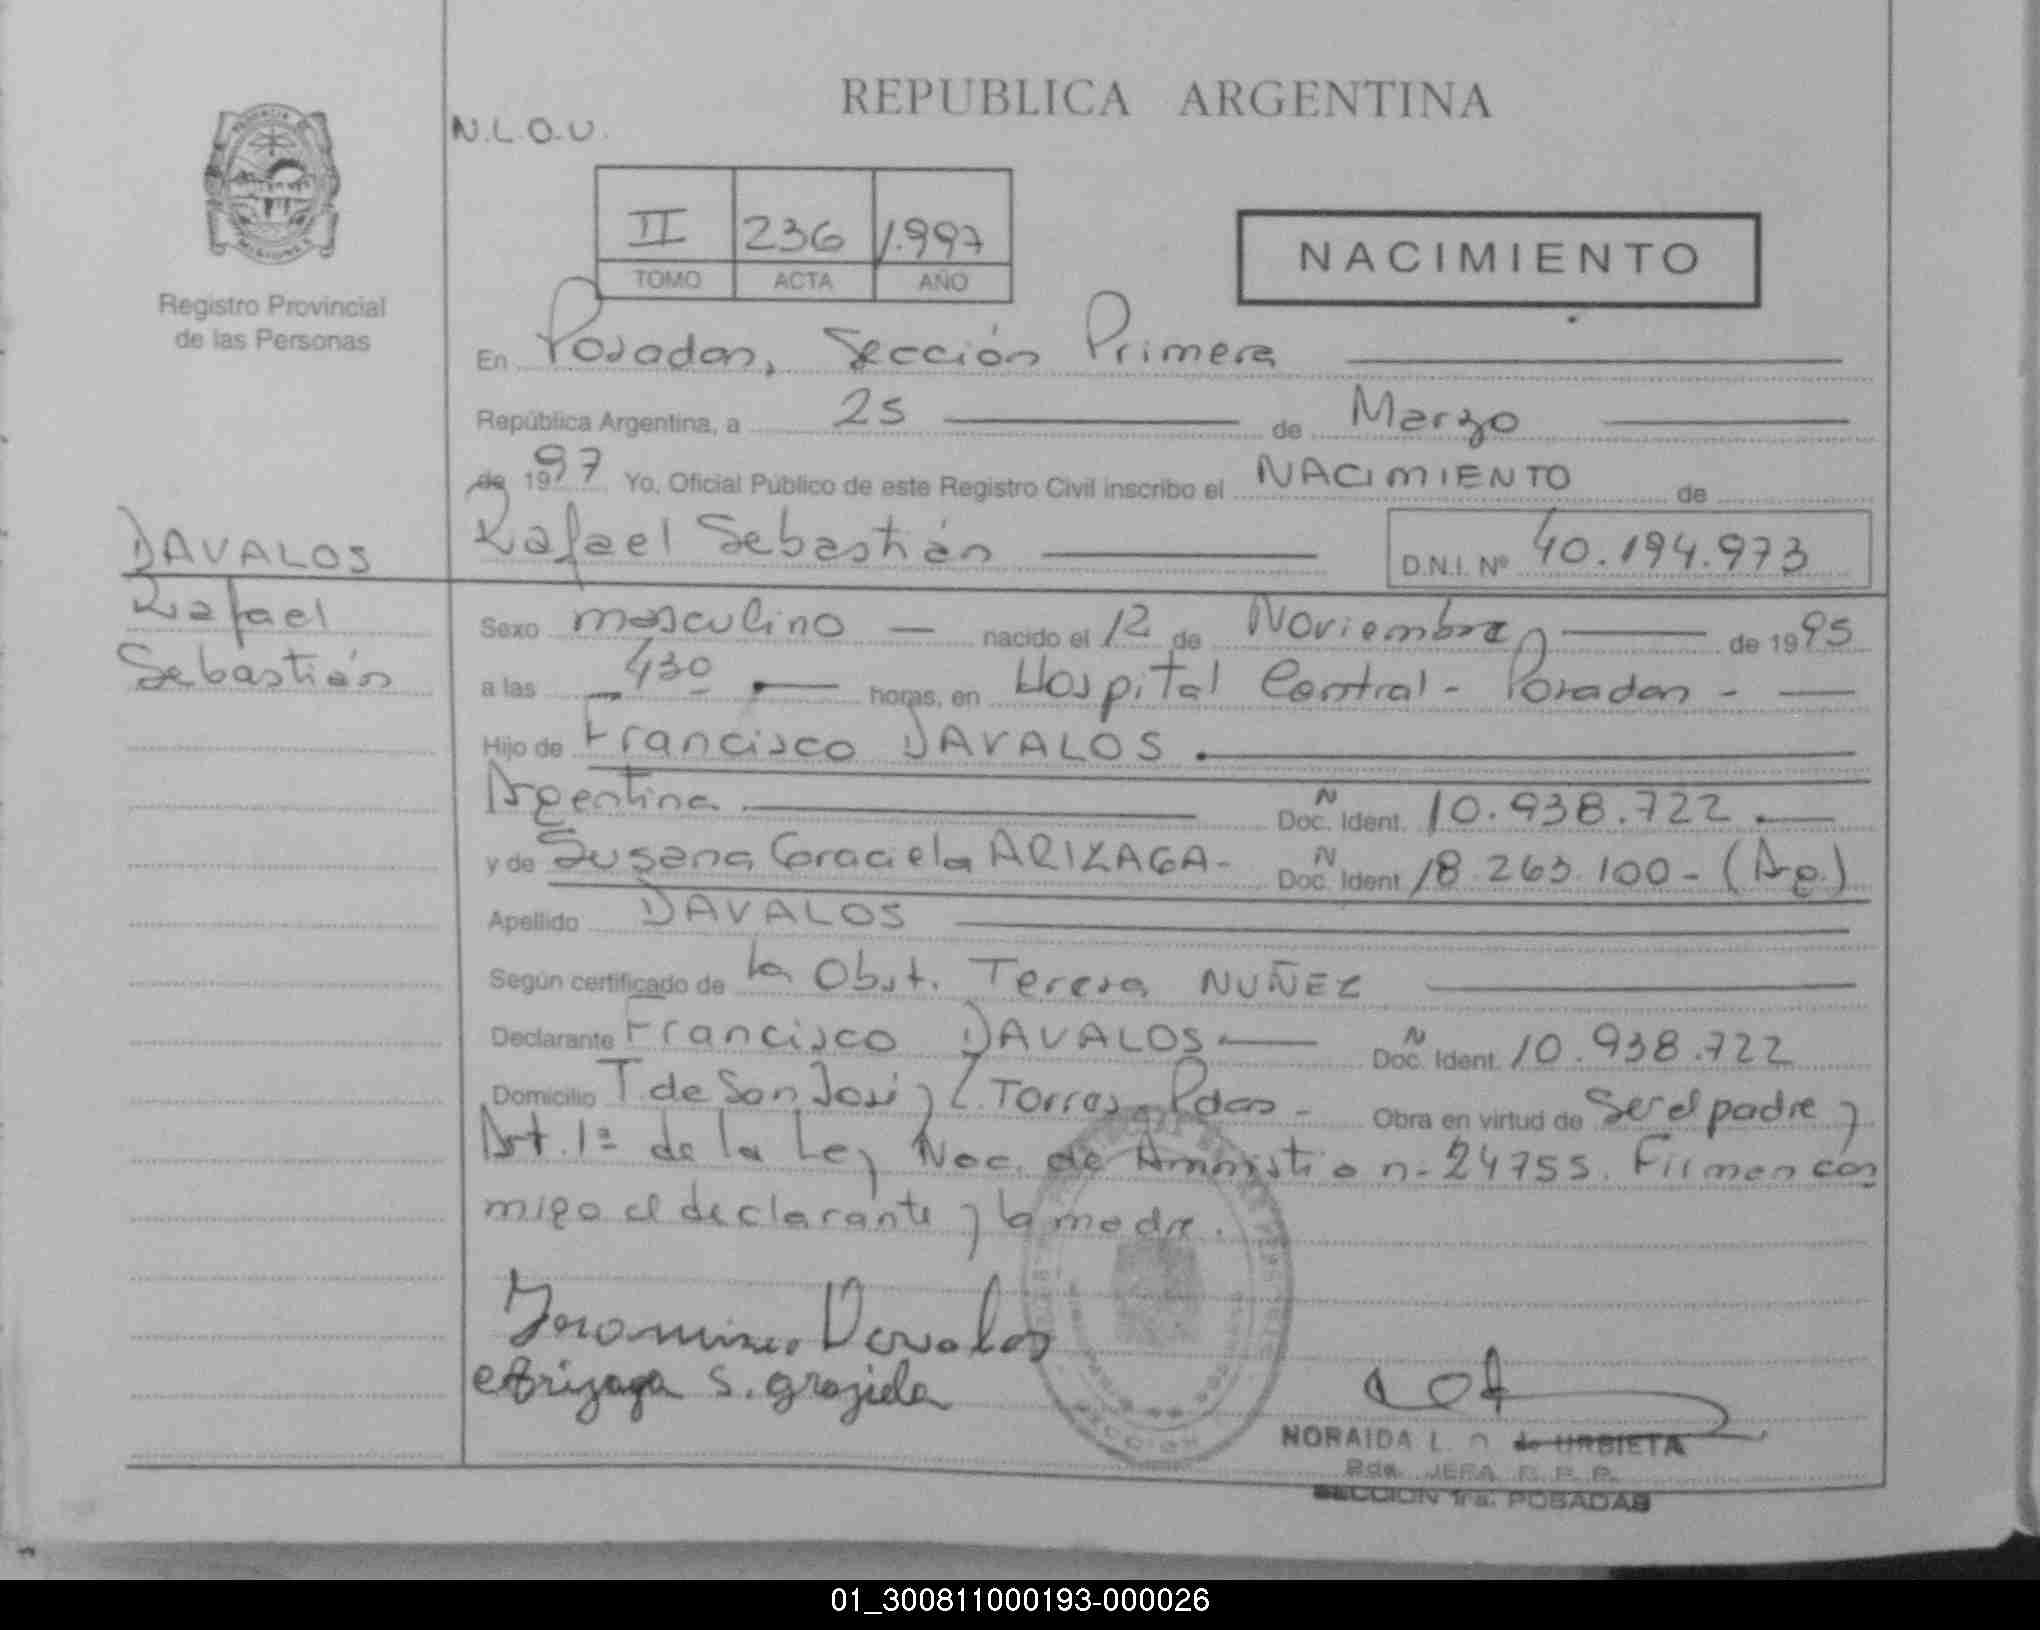 REPUBLICA ARGENTINA
N.L.O.U.
II 236 1.997
TOMO ACTA AÑO
NACIMIENTO
Registro Provincial
de las Personas
En Posadas, Sección Primera
República Argentina, a 25 de Marzo
de 1997 Yo, Oficial Público de este Registro Civil inscribo el NACIMIENTO de
Rafael Sebastián D.N.I. Nº 40.194.973
DAVALOS
Rafael
Sebastián
Sexo masculino nacido el 12 de Noviembre de 1995
a las 430 horas, en Hospital Central - Posadas -
Hijo de Francisco DAVALOS
Argentina Doc. Ident. N 10.938.722
y de Susana Graciela ARIZAGA - Doc. Ident N 18.263.100 - (Arg.)
Apellido DAVALOS
Según certificado de la Obst. Teresa NUÑEZ
Declarante Francisco DAVALOS Doc. Ident. N 10.938.722
Domicilio T. de San José y L. Torres - Pdas - Obra en virtud de Ser el padre y
Art. 1ª de la Ley Nac. de Amnistia n- 24755. Firman con
migo el declarante y la madre.
Davalos
Arizaga S. grasiela
NORAIDA L. de URBIETA
JEFA R. P. P.
SECCION 1ra. POSADAS
01_300811000193-000026